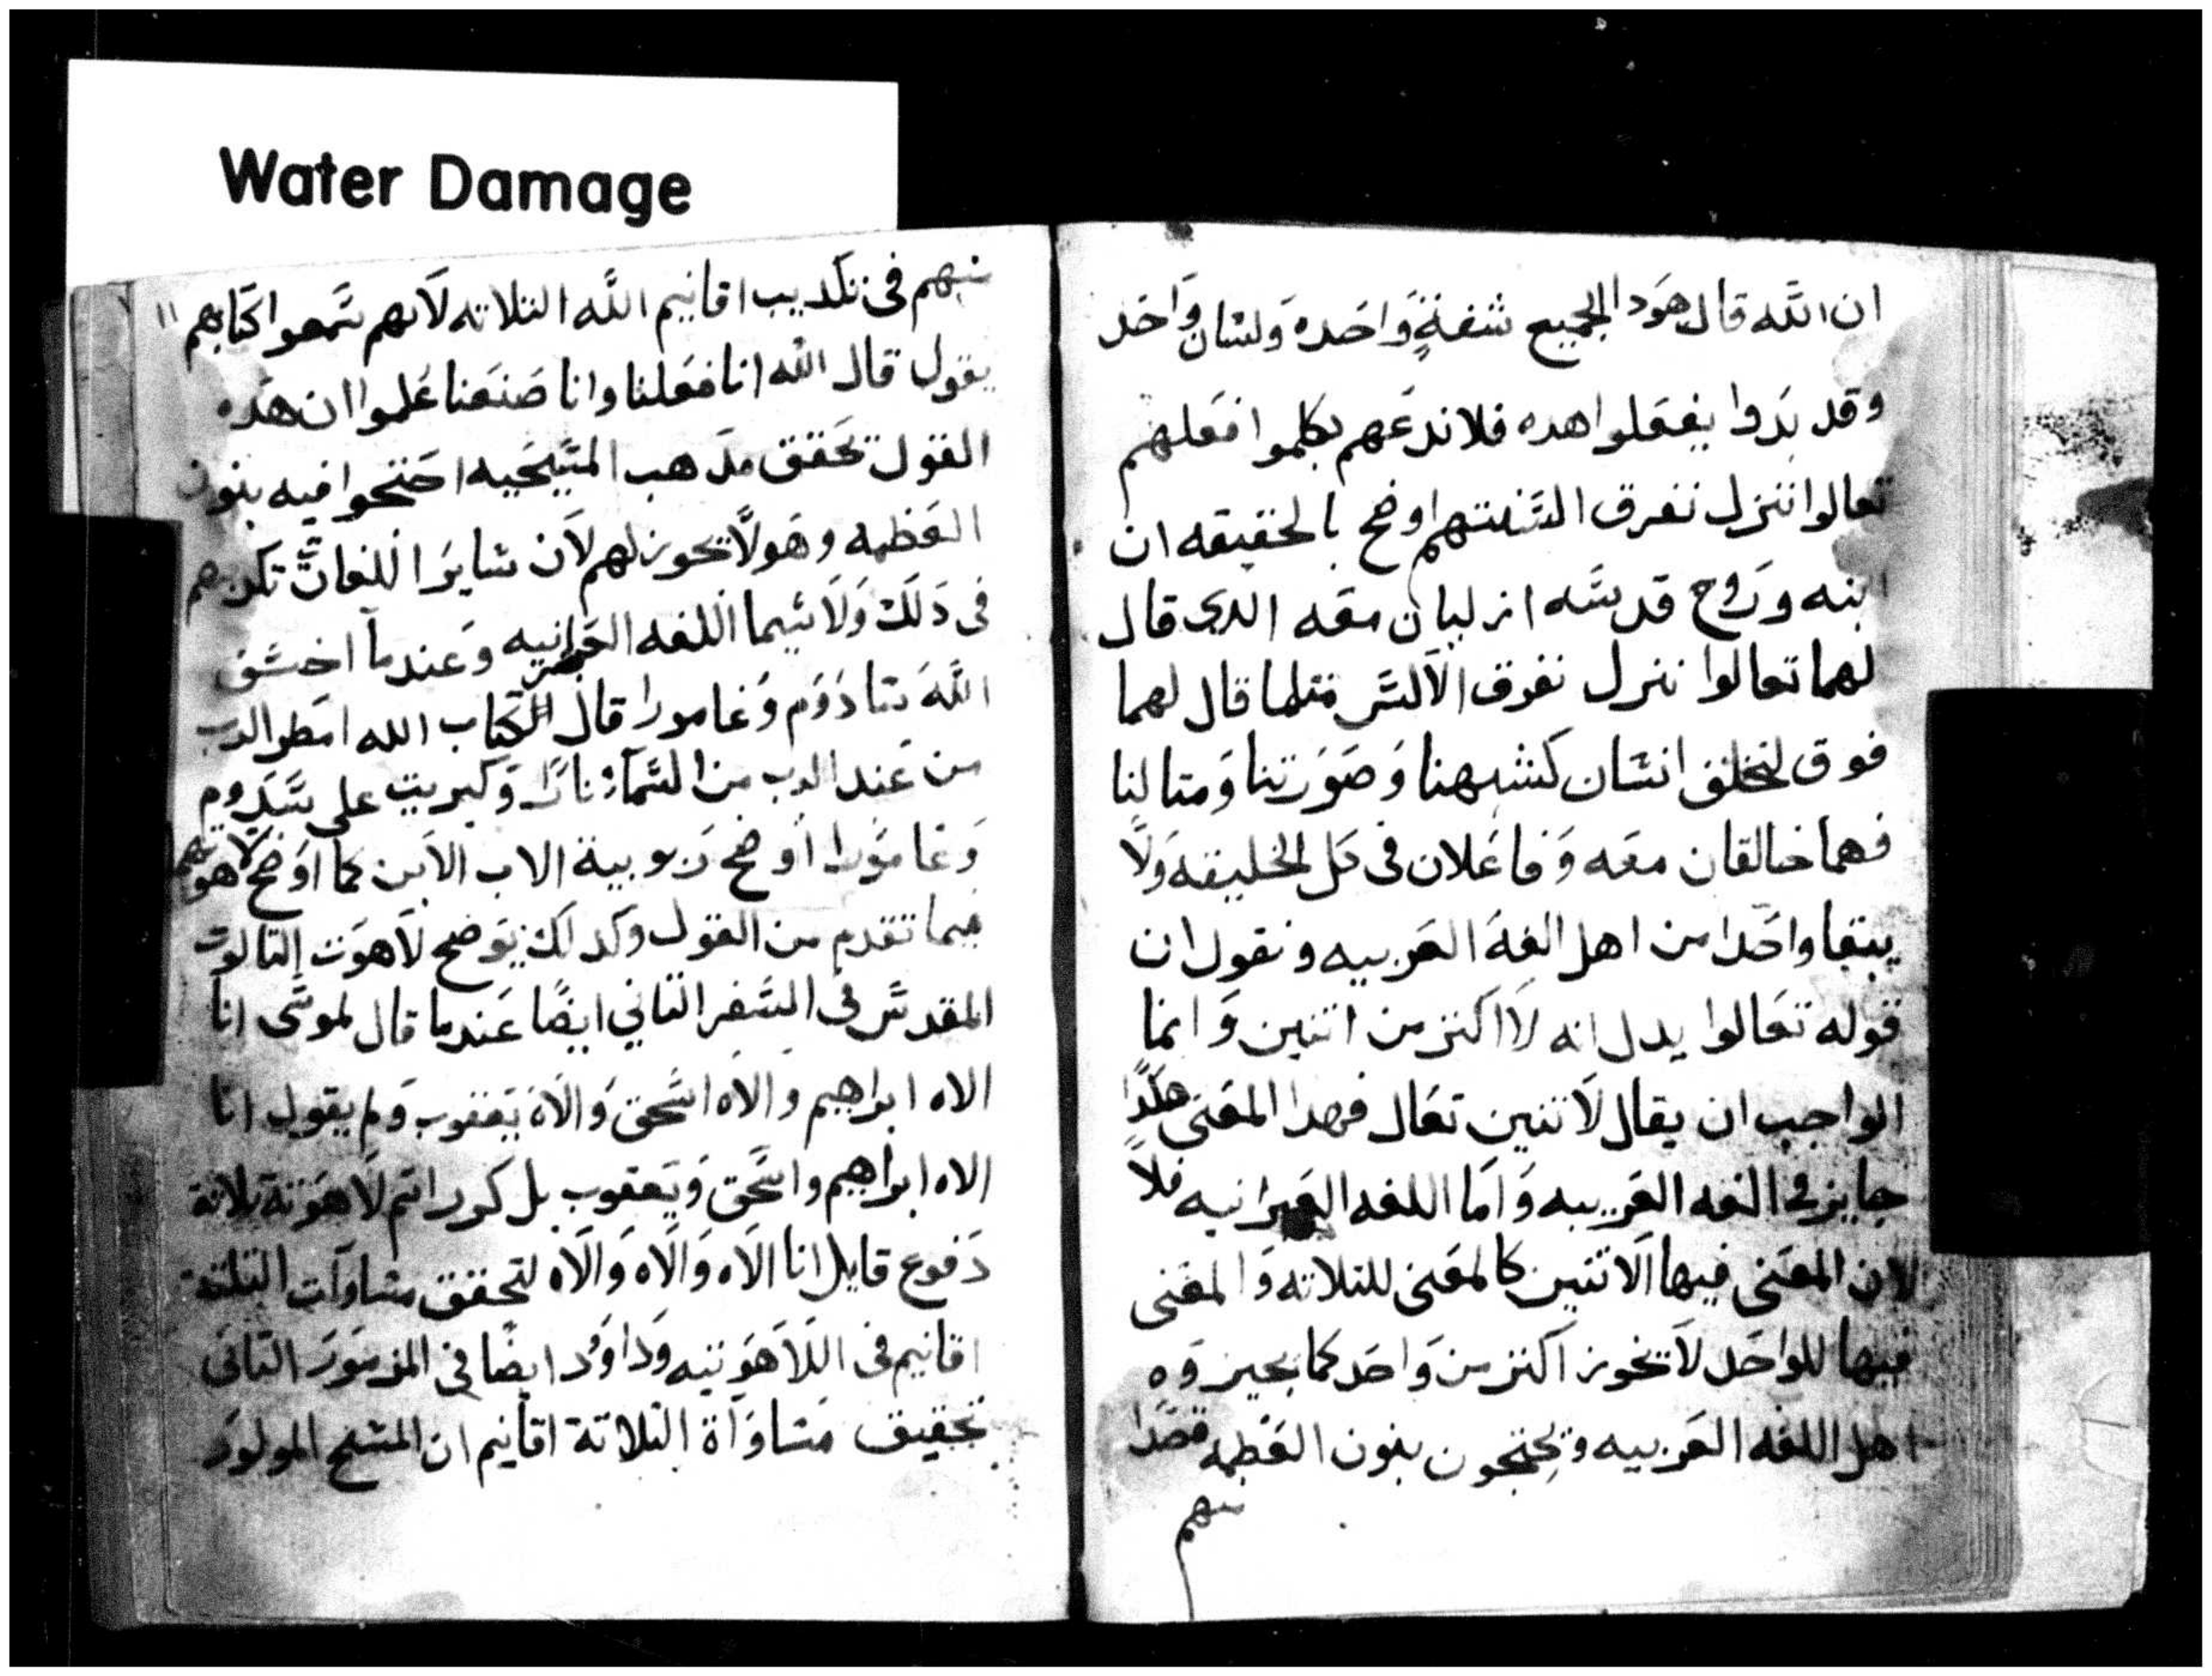 Water Damage
ان الله قال هود الجميع شفة واحده ولسان واحد
وقد بدوا يفعلوا هده فلا ندعهم يكلموا فعلهم
تعالوا ننزل نفرق السنتهم اوضح بالحقيقه ان
ابنه وروح قدسه ازليان معه الدي قال
لهما تعالوا ننزل نفرق الالسن متلما قال لهما
فوق لنخلق انسان كشبهنا وصورتنا ومتالنا
فهما خالقان معه وفاعلان في كل الخليقه ولا
يبقا واحدا من اهل الغة العربيه ونقول ان
قوله تعالوا يدل انه لا اكتر من اتنين وانما
الواجب ان يقال لاتنين تعال فهدا المعنى هكدا
جايز في الغه العربيه واما اللغه العبرانيه فلا
لان المعنى فيها الاتنين كالمعنى للتلاته والمعنى
فيها للواحد لا تجوز اكتر من واحد كما يجيزوه
اهل اللغه العربيه ويحتجون بنون العظمه قصدا
منهم
١١
منهم في تكديب اقانيم الله التلاته لانهم سمعوا كتابهم
يقول قال الله انا فعلنا وانا صنعنا علموا ان هده
القول تحقق مدهب المسيحيه احتجوا فيه بنون
العظمه وهو لا تجوز لهم لان ساير اللغات تكدبهم
في دلك ولا سيما اللغه العبرانيه وعندما اخسف
الله سادوم وغامورا قال الكتاب الله امطر الرب
من عند الرب من السماء نارا وكبريت على سدوم
وغامورا اوضح ربوبية الاب الابن كما اوضح لاهوتهم
فيما تقدم من القول وكدلك يوضح لاهوت التالوت
المقدس في السفر التاني ايضا عندما قال لموسى انا
الاه ابراهيم والاه اسحق والاه يعقوب ولم يقول انا
الاه ابراهيم واسحق ويعقوب بل كرر اسم لاهوته تلاتة
دفوع قايل انا الاه والاه والاه لتحقق مساوات التلتة
اقانيم في اللاهوتيه وداود ايضا في المزمور التانى
تحقيق مساواة التلاتة اقانيم ان المسيح المولود